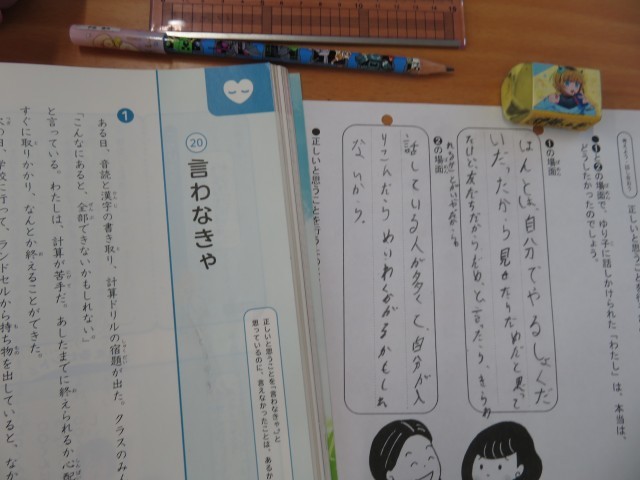 正しいと思うことを
❶と❷の場面で、ゆり子に話しかけられた「わたし」は、本当は、
どうしたかったのでしょう。
❶の場面
ほんとは、自分でやるしゅくだ
いだったから見せたらだめだと思って
たけど友だちだからだめと言ったら、きらわ
❷の場面
話している人が多くて、自分が入
りこんだらめいわくがかかるかもしれ
ないから。
正しいと思うことを行
20
言わなきゃ
正しいと思うことを「言わなきゃ。」と
思っているのに、言えなかったことは、あるか
1
ある日、音読と漢字の書き取り、計算ドリルの宿題が出た。クラスのみん
「こんなにあると、全部できないかもしれない。」
と言っている。わたしは、計算が苦手だ。あしたまでに終えられるか心配
すぐに取りかかり、なんとか終えることができた。
の日、学校に行って、ランドセルから持ち物を出していると、なか